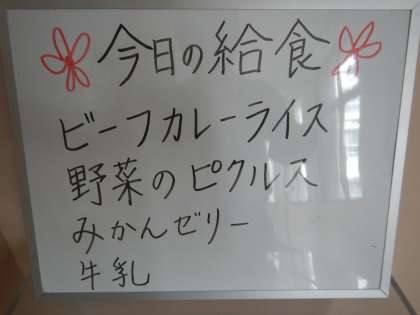 今日の給食
ビーフカレーライス
野菜のピクルス
みかんゼリー
牛乳